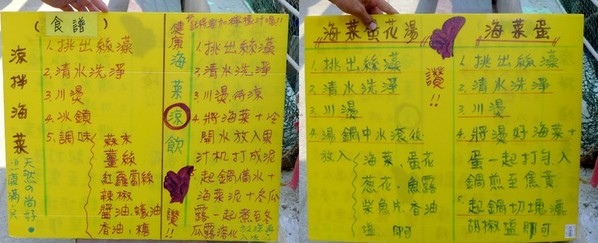 食譜
涼拌海菜
1. 挑出絲藻
2. 清水洗淨
3. 川燙
4. 冰鎮
5. 調味
蒜末
薑絲
紅蘿蔔絲
辣椒
醬油、蠔油
香油、糖
天然の尚好
健康海菜涼飲
讚!!
1. 挑出絲藻
2. 清水洗淨
3. 川燙
4. 將海菜+冷
開水放入果
汁机打成泥
起鍋備水+
海菜泥+冬瓜
露一起煮至冬
瓜露溶化
"海菜蛋花湯"
1. 挑出絲藻
2. 清水洗淨
3. 川燙
4. 湯鍋中水滾後
放入
海菜、蛋花
蔥花、魚露
柴魚片、香油
塩 即可
讚!!
"海菜蛋"
1. 挑出絲藻
2. 清水洗淨
3. 川燙
4. 將燙好海菜+
蛋一起打勻入
鍋煎至焦黃
5. 起鍋切塊灑
胡椒塩即可